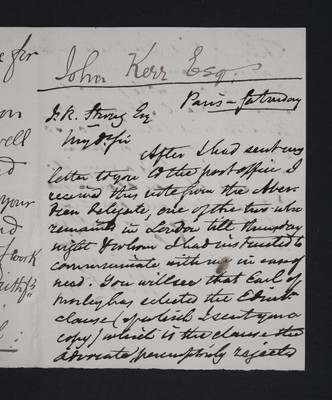 John Kerr Esq.
Paris - Saturday
J. R. Strong Esq
My Dr Sir
After I had sent my
letter to you to the post office I
received this note from the Aber-
deen delegate, one of the two who
remained in London till thursday
night & whom I had instructed to
communicate with me in case of
need. You will see that Earl of
Morley has selected the Edinr
clause (of which I sent you a
copy) which is the clause the
Advocate peremptorily rejects
for
on
well
your
nd
work